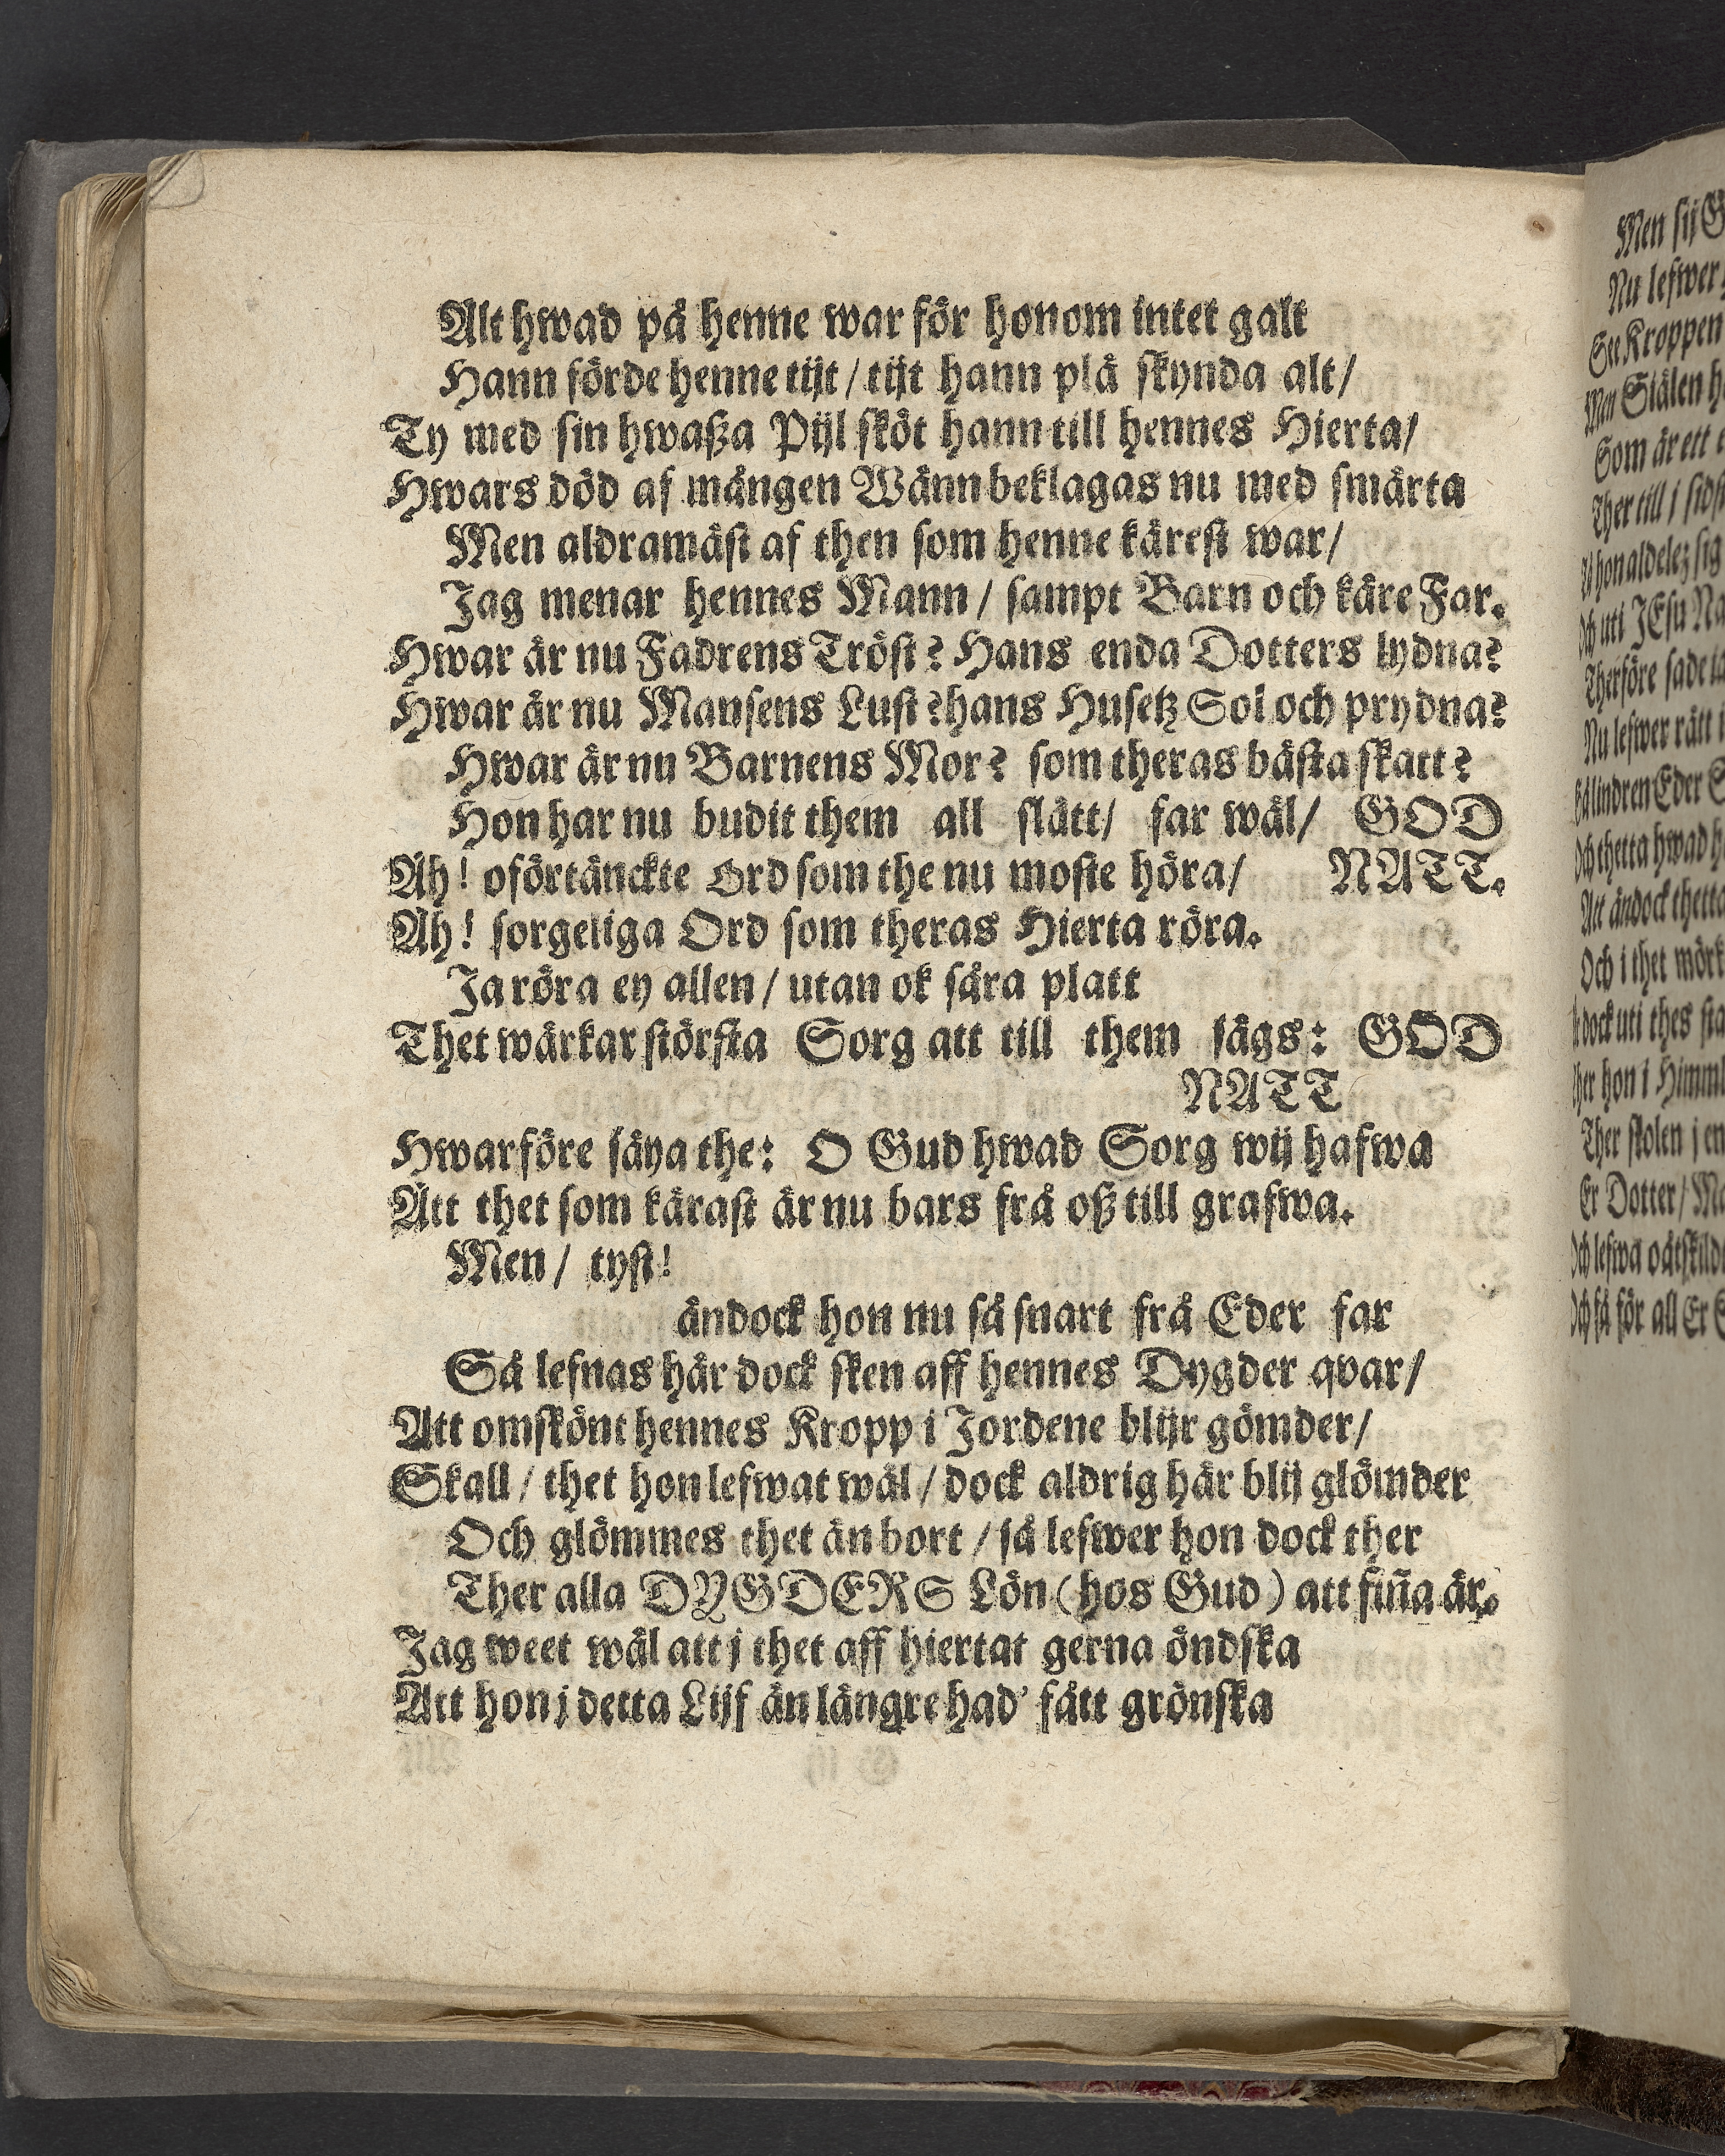 Alt hwad på henne war för honom intet galt
Hann förde henne tijt / tijt hann plä skynda alt /
Ty med sin hwaßa Pijl sköt hann till hennes Hierta /
Hwars död af mången Wänn beklagas nu med smärta
Men aldramäst af then som henne kärest war /
Jag menar hennes Mann / sampt Barn och käre Far.
Hwar är nu Fadrens Tröst? Hans enda Dotters lydna?
Hwar är nu Mansens Lust? hans Husetz Sol och prydna?
Hwar är nu Barnens Mor? som theras bästa skatt?
Hon har nu budit them all slätt / far wäl / GOD
Äh! oförtänckte Ord som the nu moste höra / NATT.
Äh! sorgeliga Ord som theras Hierta röra.
Ja röra ey allen / utan ok såra platt
Thet wärkar största Sorg att till them sägs: GOD
NATT
Hwarföre säya the: O Gud hwad Sorg wij hafwa
Ått thet som kärast är nu bars frå oß till grafwa.
Men / tyst!
ändock hon nu så snart frå Eder far
Så lefnas här dock sken aff hennes Dygder qvar /
Att omskönt hennes Kropp i Jordene blijr gömder /
Skall / thet hon lefwat wäl / dock aldrig här blij glömder
Och glömmes thet än bort / så lefwer hon dock ther
Ther alla DYGDERS Lön (hos Gud) att fiña är.
Jag weet wäl att j thet aff hiertat gerna öndska
Att hon j detta Lijf än längre had' fått grönska
Men sij
Nu lefwer
See Kroppen
Men Siälen
Som är ett
Ther till j
hon aldelez sig
Och uti JEsu
Therföre sade
Nu lefwer rätt
lindren Eder
Och thetta hwad
Att ändock thetta
Och i thet
dock uti thes
hon i
Ther stolen j
Er Dotter /
Och lefwa
Och så för all Er